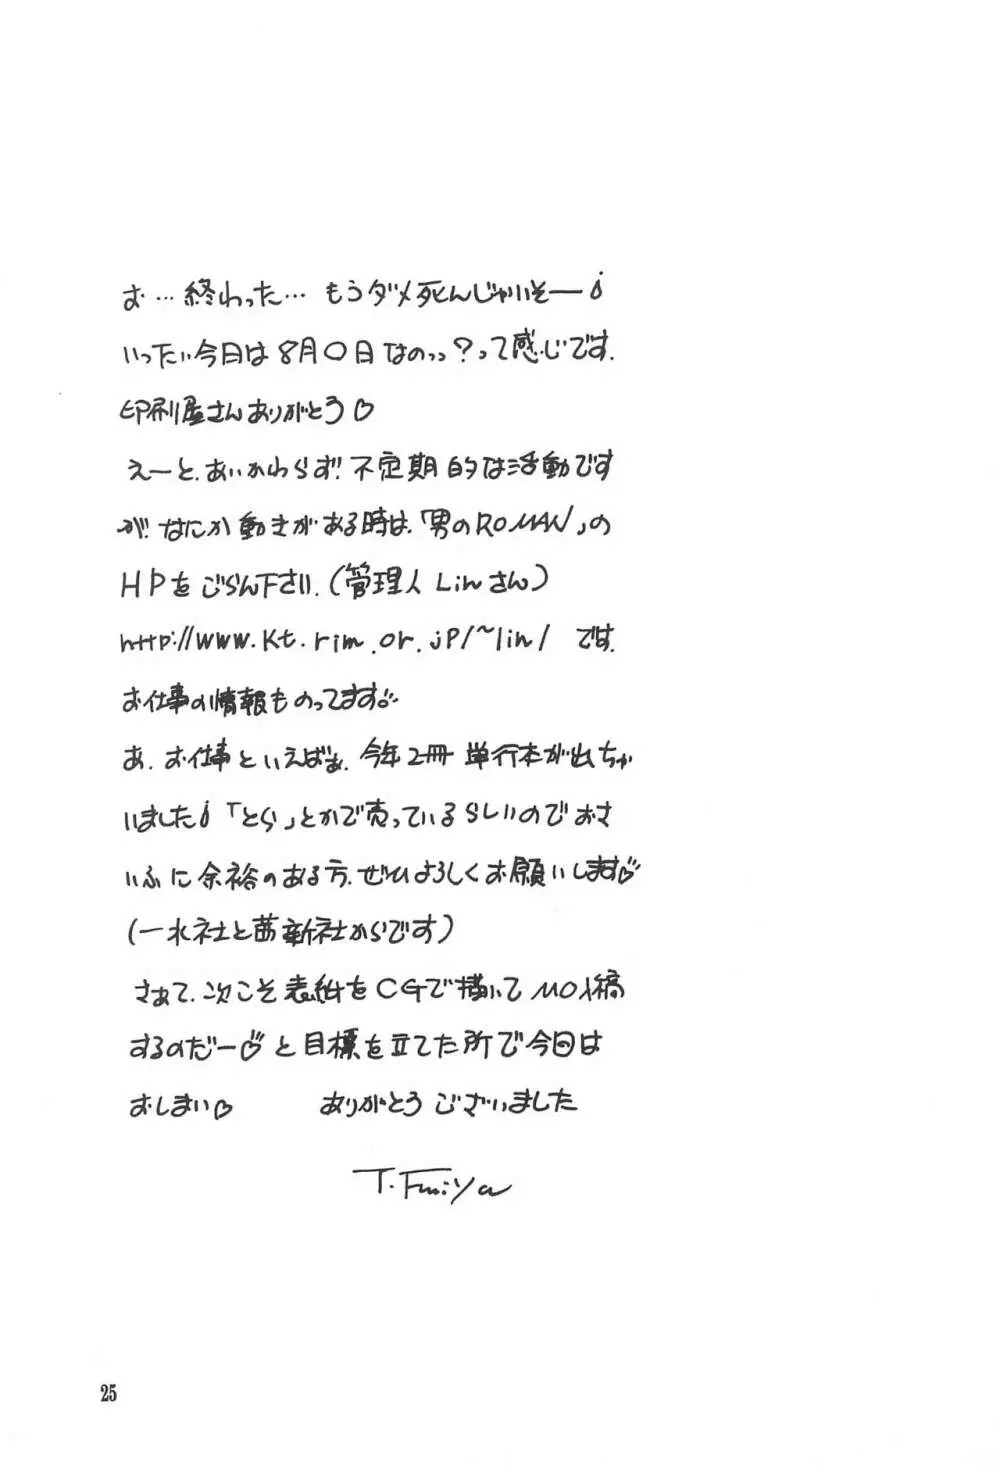 お…終わった… もうダメ死んじゃいそー!
いったい今日は8月〇日なのっっ?って感じです.
印刷屋さんありがとう♡
えーと、あいかわらず!不定期的な活動です
が、なにか動きがある時は、「男のROMAN」の
HPをごらん下さい.(管理人Linさん)
http://www.kt.rim.or.jp/~lin/ です.
お仕事の情報ものってます♡
あ、お仕事といえばぁ、今年2冊 単行本が出ちゃ
いました!「とら」とかで売っているらしいのでおさ
いふに余裕のある方、ぜひよろしくお願いします♡
(一水社と茜新社からです)
さぁて、次こそ表紙をCGで描いてMO入稿
するのだー♡と目標を立てた所で今回は
おしまい♡ ありがとうございました
T.Fujiya
25